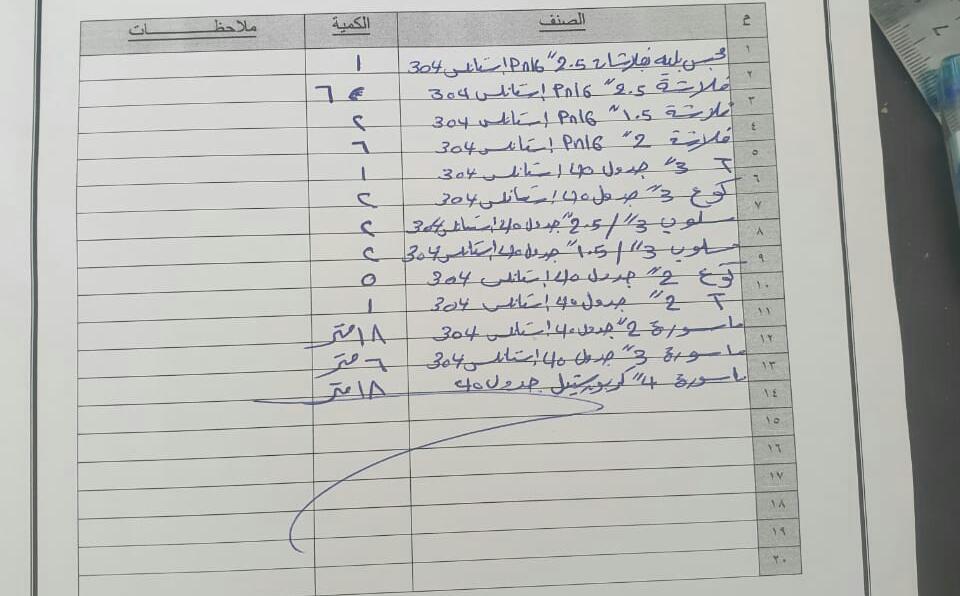 م الصنف الكمية ملاحظـــــــــات
١ محبس بليه بفلانشات 2.5" Pn16 استانلس 304 ١
٢ فلانشة 2.5" Pn16 استانلس 304 ٦
٣ فلانشة 1.5" Pn16 استانلس 304 ٢
٤ فلانشة 2" Pn16 استانلس 304 ٦
٥ T 3" جدول 40 استانلس 304 ١
٦ كوع 3" جدول 40 استانلس 304 ٢
٧ مسلوب 3"/2.5" جدول 40 استانلس 304 ٢
٨ مسلوب 3"/1.5" جدول 40 استانلس 304 ٢
٩ كوع 2" جدول 40 استانلس 304 ٥
١٠ T 2" جدول 40 استانلس 304 ١
١١ ماسورة 2" جدول 40 استانلس 304 ١٨ متر
١٢ ماسورة 3" جدول 40 استانلس 304 ٦ متر
١٣ ماسورة 4" كربون ستيل جدول 40 ١٨ متر
١٤
١٥
١٦
١٧
١٨
١٩
٢٠